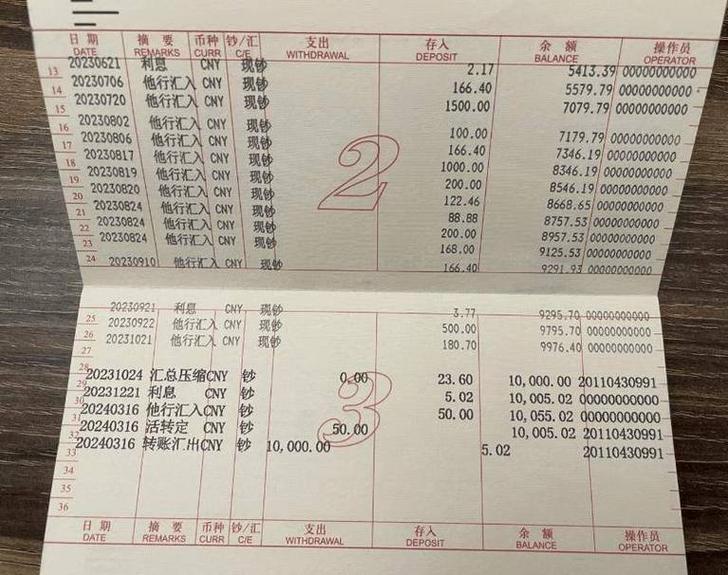 日期 摘要 币种 钞/汇 支出 存入 余额 操作员
DATE REMARKS CURR C/E WITHDRAWAL DEPOSIT BALANCE OPERATOR
13 20230621 利息 CNY 现钞 2.17 5413.39 00000000000
14 20230706 他行汇入 CNY 现钞 166.40 5579.79 00000000000
15 20230720 他行汇入 CNY 现钞 1500.00 7079.79 00000000000
16 20230802 他行汇入 CNY 现钞 100.00 7179.79 00000000000
17 20230806 他行汇入 CNY 现钞 166.40 7346.19 00000000000
18 20230817 他行汇入 CNY 现钞 1000.00 8346.19 00000000000
19 20230819 他行汇入 CNY 现钞 200.00 8546.19 00000000000
20 20230820 他行汇入 CNY 现钞 122.46 8668.65 00000000000
21 20230824 他行汇入 CNY 现钞 88.88 8757.53 00000000000
22 20230824 他行汇入 CNY 现钞 200.00 8957.53 00000000000
23 20230824 他行汇入 CNY 现钞 168.00 9125.53 00000000000
24 20230910 他行汇入 CNY 现钞 166.40 9291.93 00000000000
2
20230921 利息 CNY 现钞 3.77 9295.70 00000000000
25 20230922 他行汇入 CNY 现钞 500.00 9795.70 00000000000
26 20231021 他行汇入 CNY 现钞 180.70 9976.40 00000000000
27
28
20231024 汇总压缩 CNY 钞 0.00 23.60 10,000.00 20110430991
29
20231221 利息 CNY 钞 5.02 10,005.02 00000000000
20240316 他行汇入 CNY 钞 50.00 10,055.02 00000000000
20240316 活转定 CNY 钞 50.00 10,005.02 20110430991
33 20240316 转账汇出 CNY 钞 10,000.00 5.02 20110430991
3
34
35
36
日期 摘要 币种 钞/汇 支出 存入 余额 操作员
DATE REMARKS CURR C/E WITHDRAWAL DEPOSIT BALANCE OPERATOR